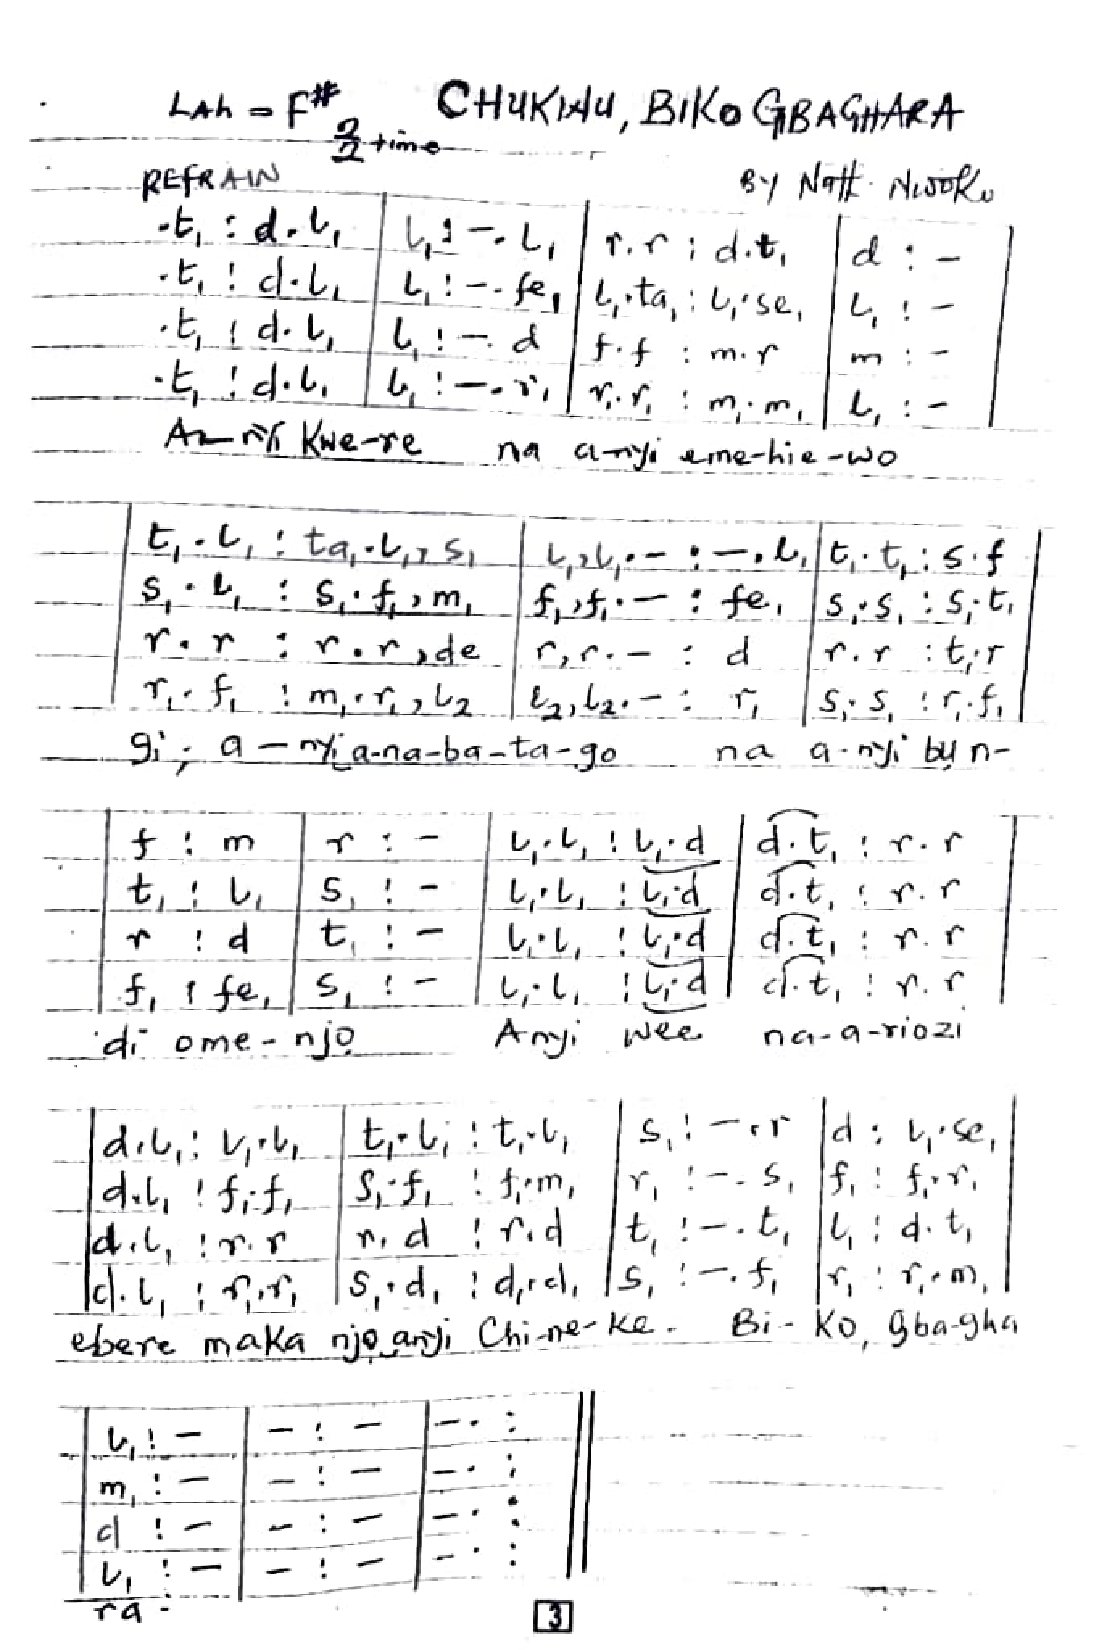 LAH = F# CHUKWU, BIKO GBAGHARA
2/2 time
REFRAIN BY Natt. Nwoku
.t₁ : d.l₁ | l₁ : -.l₁ | r.r : d.t₁ | d : - |
.t₁ : d.l₁ | l₁ : -.fe₁ | l₁.ta₁ : l₁.se₁ | l₁ : - |
.t₁ : d.l₁ | l₁ : -.d | f.f : m.r | m : - |
.t₁ : d.l₁ | l₁ : -.r₁ | r₁.r₁ : m₁.m₁ | l₁ : - |
A-nyi Kwe-re na a-nyi eme-hie-wo
| t₁.l₁ : ta₁.l₁,s₁ | l₁,l₁.- : -.l₁ | t₁.t₁ : s.f |
| s₁.l₁ : s₁.f₁,m₁ | f₁,f₁.- : fe₁ | s₁.s₁ : s₁.t₁ |
| r.r : r.r,de | r,r.- : d | r.r : t₁.r |
| r₁.f₁ : m₁.r₁,l₂ | l₂,l₂.- : r₁ | s₁.s₁ : r₁.f₁ |
gi; a-nyi a-na-ba-ta-go na a-nyi bụ n-
| f : m | r : - | l₁.l₁ : l₁.d | d.t₁ : r.r |
| t₁ : l₁ | s₁ : - | l₁.l₁ : l₁.d | d.t₁ : r.r |
| r : d | t₁ : - | l₁.l₁ : l₁.d | d.t₁ : r.r |
| f₁ : fe₁ | s₁ : - | l₁.l₁ : l₁.d | d.t₁ : r.r |
di ome-njọ Anyi wee na-a-riozi
| d.l₁ : l₁.l₁ | t₁.l₁ : t₁.l₁ | s₁ : -.r | d : l₁.se₁ |
| d.l₁ : f₁.f₁ | s₁.f₁ : f₁.m₁ | r₁ : -.s₁ | f₁ : f₁.r₁ |
| d.l₁ : r.r | r.d : r.d | t₁ : -.t₁ | l₁ : d.t₁ |
| d.l₁ : r₁.r₁ | s₁.d₁ : d₁.d₁ | s₁ : -.f₁ | r₁ : r₁.m₁ |
ebere maka njọ anyi Chi-ne-ke. Bi-ko, gba-gha
| l₁ : - | - : - | -. : ||
| m₁ : - | - : - | -. : ||
| d : - | - : - | -. : ||
| l₁ : - | - : - | -. : ||
ra.
3